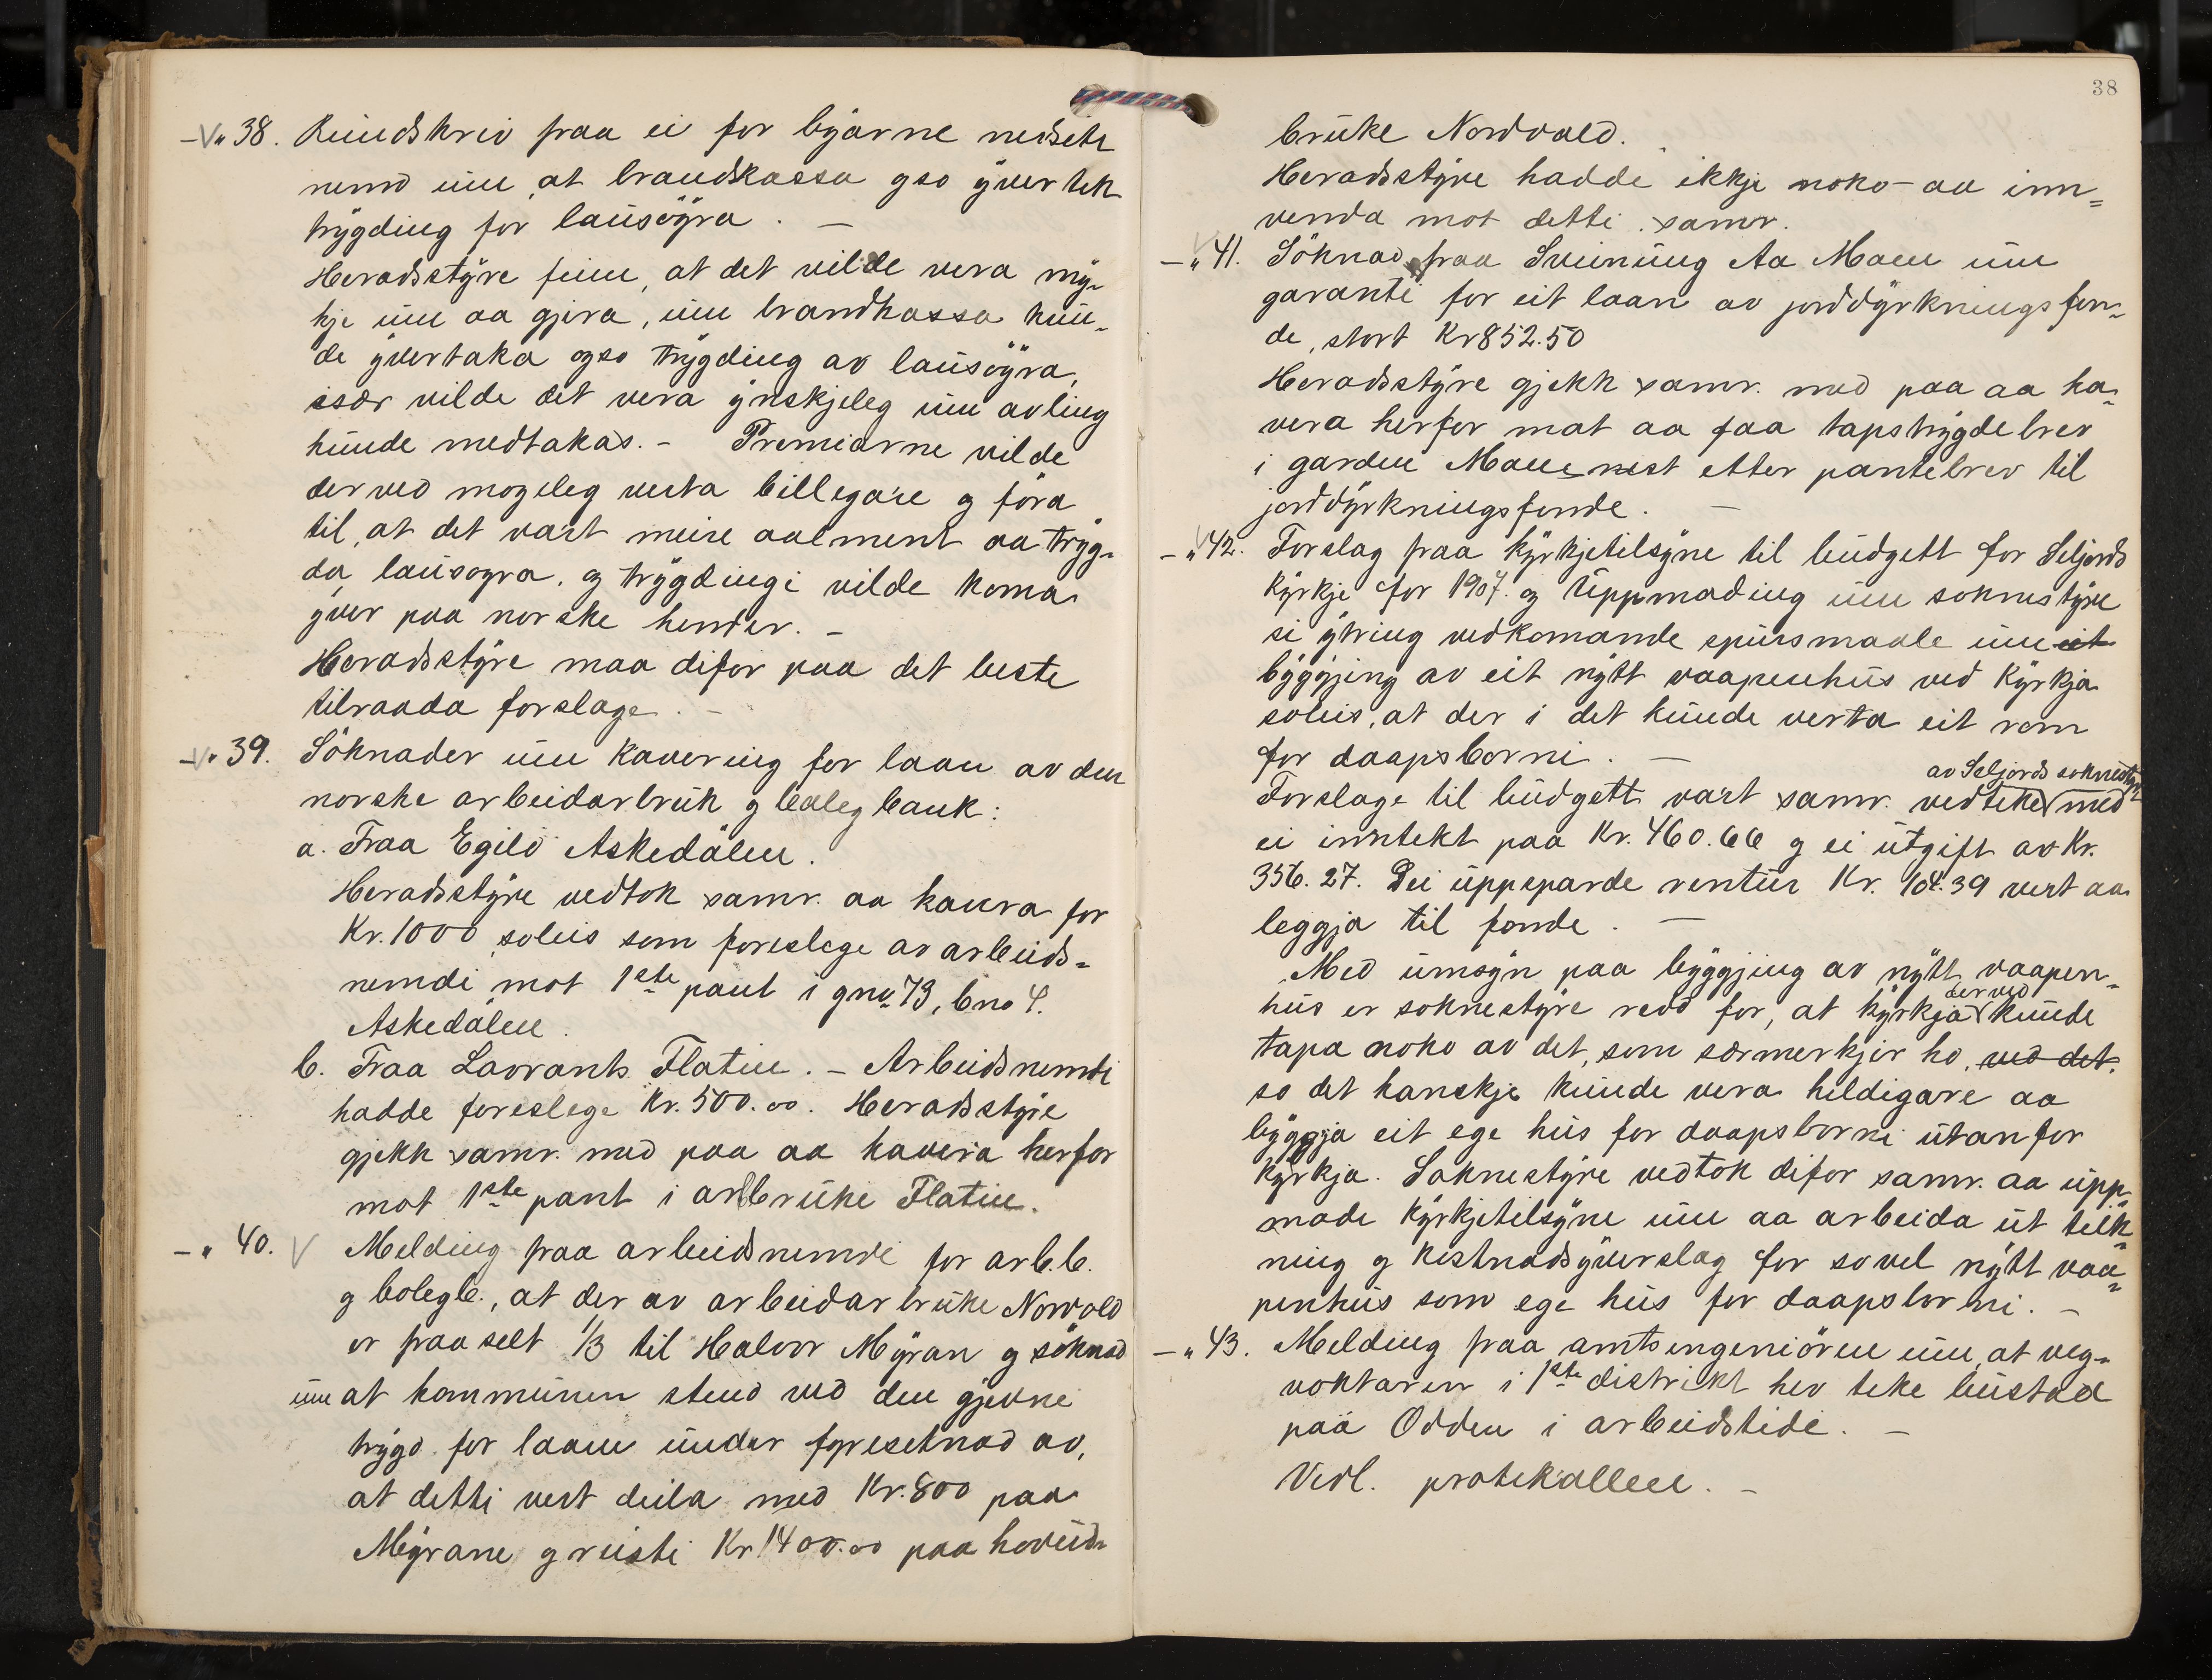 -V„ 38. Rundskriv fraa ei for byarne nedsett
nemd um, at brandkassa ogso yvertek
trygding for lausøyra. —
Heradsstyre finn, at det vilde vera my-
kje um aa gjera, um brandkassa kun-
de yvertaka ogso trygding av lausøyra,
især vilde det vera ynskjeleg um avling
kunde medtakas. - Premiarne vilde
derved mogeleg verta billegare og föra
til, at det vart meire aalment aa tryg-
da lausoyra. og trygdingi vilde koma
yver paa norske hender. -
Heradsstyre maa difor paa det beste
tilraada forslage. -
-V„ 39. Söknader um kavering for laan av den
norske arbeidarbruk og bolegbank:
a. Fraa Egild Askedalen.
Heradsstyre vedtok samr. aa kavra for
Kr. 1000 soleis som foreslege av arbeids-
nemdi mot 1ste pant i gno 73, bno 4.
Askedalen.
b. Fraa Lavrants Flatin. - Arbeidsnemdi
hadde foreslege Kr. 500.00. Heradsstyre
gjekk samr. med paa aa kavera herfor
mot 1ste pant i arbbruki Flatin.
-„ 40. V Melding fraa arbeidsnemdi for arb.b.
og bolegb., at der av arbeidarbruke Nordvald
er fraaselt 1/3 til Halvor Myran og söknad
um at kommunen stend ved den gjevne
trygd for laane under fyresetnad av,
at detti vert deila med Kr. 800 paa
Myrane og resti Kr 1400.00 paa hovud-
38
bruke Nordvald.
Heradsstyre hadde ikkje noko aa inn-
venda mot detti. samr.
-„ 41. Söknad fraa Sveinung Aa Moen um
garanti for eit laan av jorddyrkningsfon-
de, stort Kr 852.50
Heradsstyre gjekk samr. med paa aa ka-
vera herfor mot aa faa tapstrygdebrev
i garden Moen nest etter pantebrev til
jorddyrkningsfonde. —
-„ V42. Forslag fraa kyrkjetilsyne til budgett for Seljords
kyrkje for 1907. og Uppmoding um soknestyre
si ytring vedkomande spursmaale um eit
byggjing av eit nytt vaapenhus ved Kyrkja
soleis, at der i det kunde verta eit rom
for daapsborni. —
av Seljords soknestyre
Forslage til budgett vart samr. vedteke med
ei inntekt paa Kr. 460.66 og ei utgift av Kr.
356.27. Dei uppsparde rentur Kr. 104.39 vert aa
leggja til fonde. —
Med umsyn paa byggjing av nytt vaapen-
der ved
hus er soknestyre redd for, at kyrkja kunde
tapa noko av det, som særmerkjer ho, ved det.
so det kanskje kunde vera heldigare aa
byggja eit ege hus for daapsborni utanfor
kyrkja. Soknestyre vedtok difor samr. aa upp-
mode kyrkjetilsyne um aa arbeida ut teik-
ning og kostnadsyverslag for sovel nytt vaa-
penhus som ege hus for daapsborni. -
-„ 43. Melding fraa amtsingeniören um, at veg-
voktaren i 1ste distrikt hev teke bustad
paa Odden i arbeidstidi. -
Vedl. protokollen. -